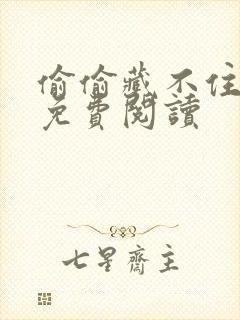 偷偷藏不住
免費閱讀
七星齋主